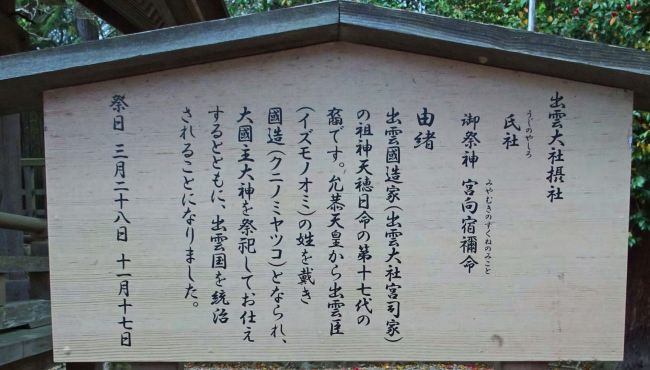 出雲大社摂社
うじのやしろ
氏社
みやむきのすくねのみこと
御祭神 宮向宿禰命
由緒
出雲國造家(出雲大社宮司家)
の祖神天穂日命の第十七代の
裔です。允恭天皇から出雲臣
(イズモノオミ)の姓を戴き
國造(クニノミヤツコ)となられ、
大國主大神を祭祀してお仕え
するとともに、出雲国を統治
されることになりました。
祭日 三月二十八日 十一月十七日